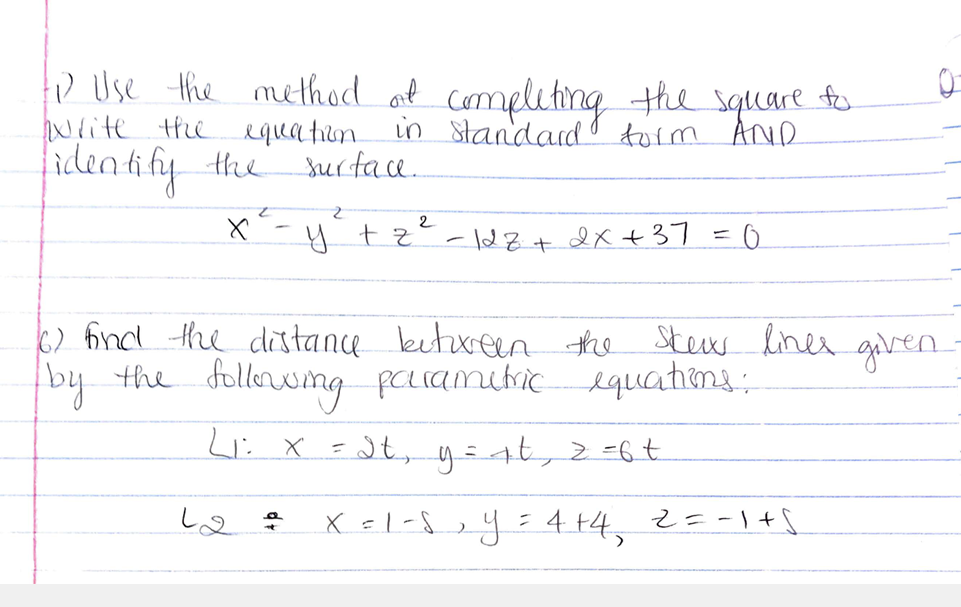 1) Use the method of completing the square to
write the equation in standard form AND
identify the surface.
x² - y² + z² - 12z + 2x + 37 = 0
6) find the distance between the skew lines given
by the following parametric equations:
L1: x = 2t, y = 4t, z = 6t
L2 : x = 1-s, y = 4+4, z = -1+s